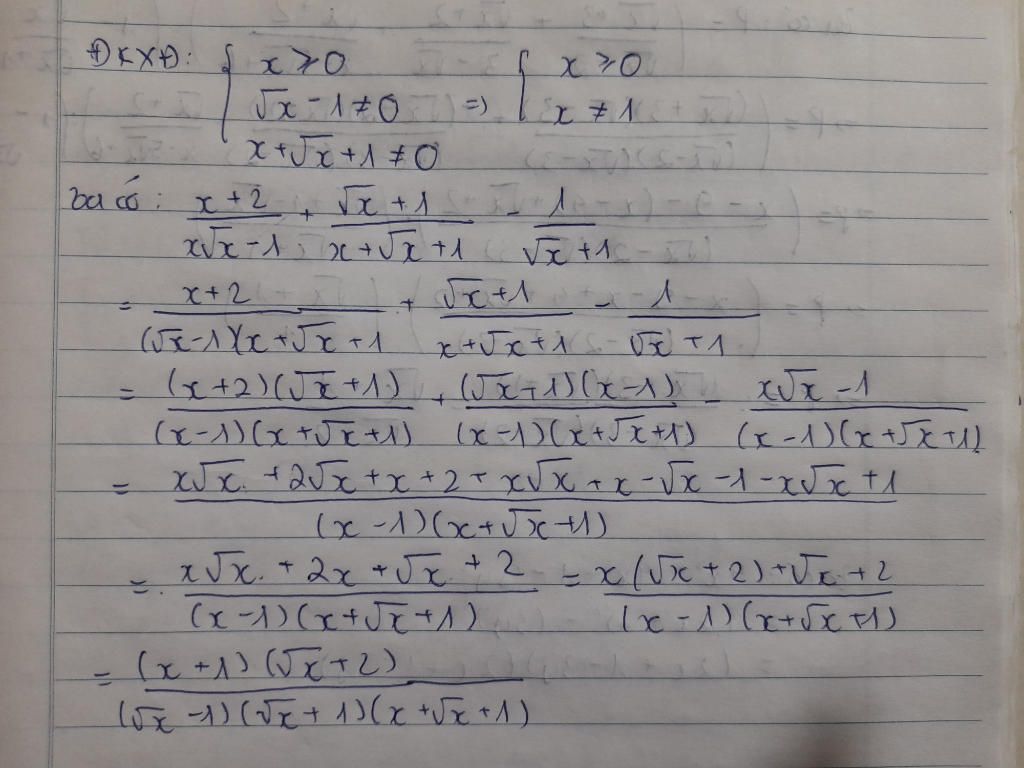 ĐKXĐ: { x ≥ 0 { x ≥ 0
√x - 1 ≠ 0 => x ≠ 1
x + √x + 1 ≠ 0
Ta có: (x + 2)/(x√x - 1) + (√x + 1)/(x + √x + 1) - 1/(√x + 1)
= (x + 2)/((√x - 1)(x + √x + 1) + (√x + 1)/(x + √x + 1) - 1/(√x + 1)
= (x + 2)(√x + 1)/((x - 1)(x + √x + 1)) + (√x + 1)(x - 1)/((x - 1)(x + √x + 1)) - (x√x - 1)/((x - 1)(x + √x + 1))
= (x√x + 2√x + x + 2 + x√x + x - √x - 1 - x√x + 1)/((x - 1)(x + √x + 1))
= (x√x + 2x + √x + 2)/((x - 1)(x + √x + 1)) = (x(√x + 2) + √x + 2)/((x - 1)(x + √x + 1))
= (x + 1)(√x + 2)/((√x - 1)(√x + 1)(x + √x + 1))